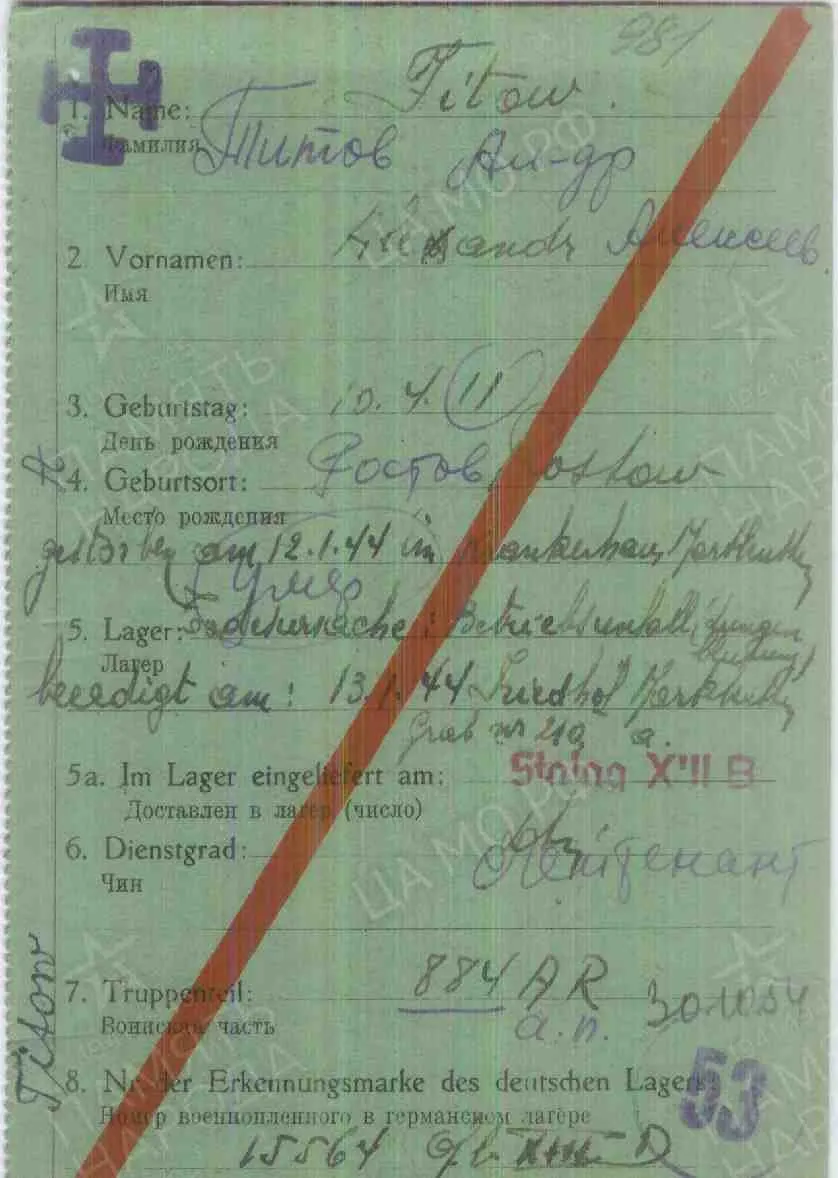 981
Titow.
1. Name:
Фамилия Титов Ал-др
Alexandr Алексеев.
2. Vornamen:
Имя
3. Geburtstag: 10.4.11
День рождения
4. Geburtsort: Ростов Rostow
Место рождения
gestorben am 12.1.44 im Krankenhaus
умер
5. Lager: Todesursache: Betriebsunfall, (Lungen
Лагер
beerdigt am: 13.1.44 Friedhof
Grab nr 219 a.
5a. Im Lager eingeliefert am: Stalag XIII B
Доставлен в лагерь (число)
6. Dienstgrad: Лейтенант
Чин
Titow
7. Truppenteil: 884 AR
Воинская часть а.п. 30.10.54
8. Nr. der Erkennungsmarke des deutschen Lagers:
53
Номер военнопленного в германском лагере
15564 Ofl. XIII D
ЦА МО РФ
ПАМЯТЬ НАРОДА
1941-1945